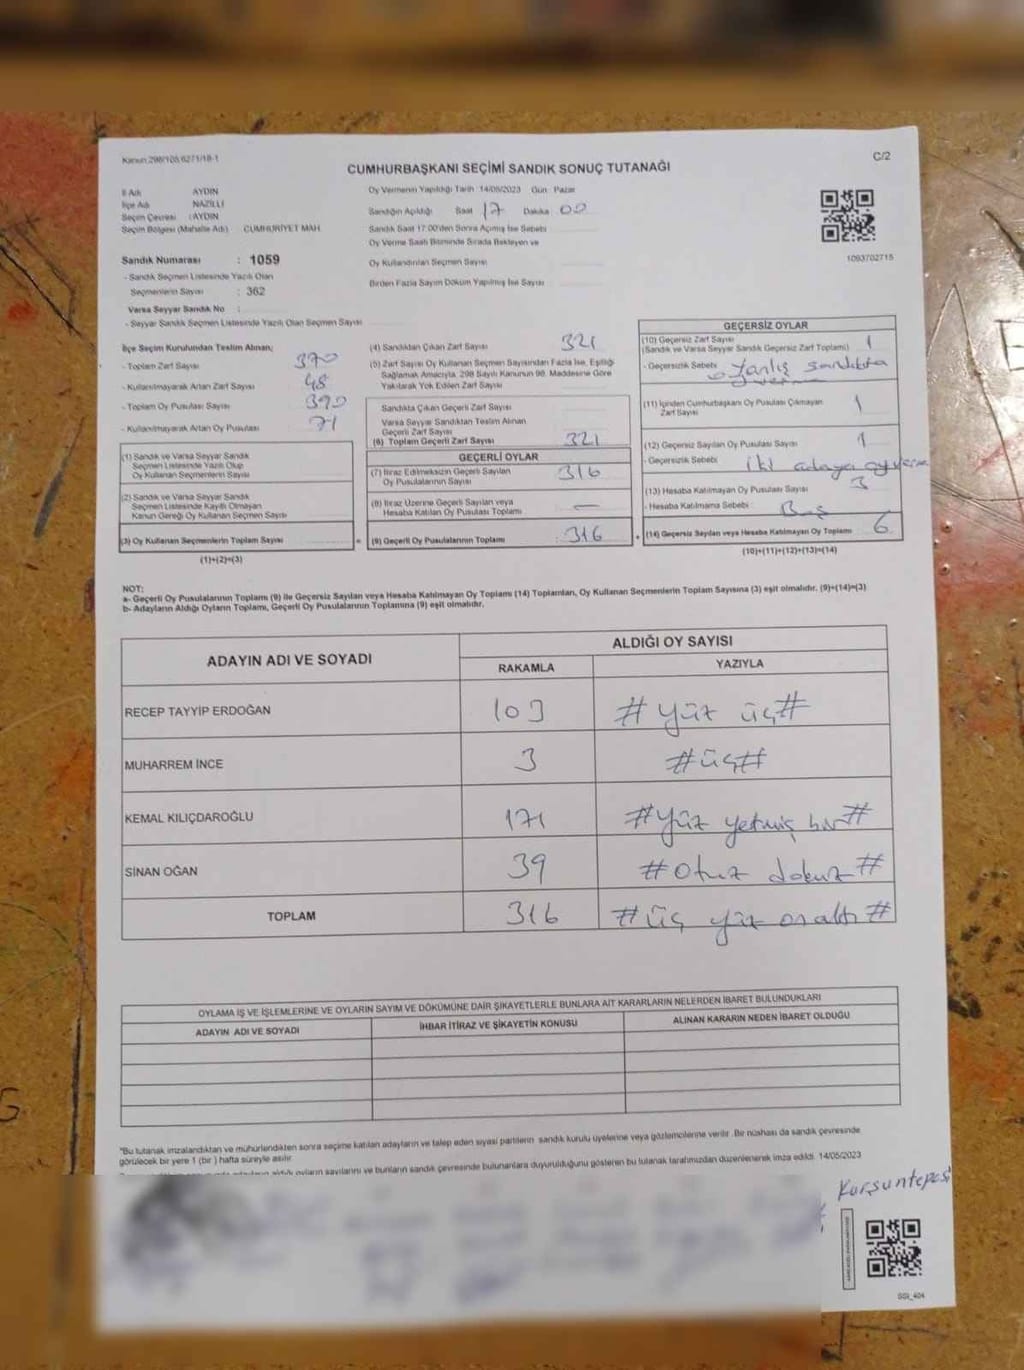 Kanun:298/105;6271/18-1
C/2
CUMHURBAŞKANI SEÇİMİ SANDIK SONUÇ TUTANAĞI
İl Adı AYDIN
İlçe Adı NAZİLLİ
Seçim Çevresi : AYDIN
Seçim Bölgesi (Mahalle Adı) CUMHURİYET MAH.
Sandık Numarası : 1059
- Sandık Seçmen Listesinde Yazılı Olan
Seçmenlerin Sayısı : 362
Varsa Seyyar Sandık No :
- Seyyar Sandık Seçmen Listesinde Yazılı Olan Seçmen Sayısı
Oy Vermenin Yapıldığı Tarih 14/05/2023 Gün Pazar
Sandığın Açıldığı Saat 17 Dakika 00
Sandık Saat 17:00'den Sonra Açılmış İse Sebebi
Oy Verme Saati Bitiminde Sırada Bekleyen ve
Oy Kullandırılan Seçmen Sayısı
Birden Fazla Sayım Döküm Yapılmış İse Sayısı
1093702715
İlçe Seçim Kurulundan Teslim Alınan;
- Toplam Zarf Sayısı 370
- Kullanılmayarak Artan Zarf Sayısı 48
- Toplam Oy Pusulası Sayısı 390
- Kullanılmayarak Artan Oy Pusulası 71
(1) Sandık ve Varsa Seyyar Sandık
Seçmen Listesinde Yazılı Olup
Oy Kullanan Seçmenlerin Sayısı
(2) Sandık ve Varsa Seyyar Sandık
Seçmen Listesinde Kayıtlı Olmayan
Kanun Gereği Oy Kullanan Seçmen Sayısı
(3) Oy Kullanan Seçmenlerin Toplam Sayısı =
(1)+(2)=(3)
(4) Sandıktan Çıkan Zarf Sayısı 321
(5) Zarf Sayısı Oy Kullanan Seçmen Sayısından Fazla İse, Eşitliği
Sağlamak Amacıyla, 298 Sayılı Kanunun 98. Maddesine Göre
Yakılarak Yok Edilen Zarf Sayısı
Sandıkta Çıkan Geçerli Zarf Sayısı
Varsa Seyyar Sandıktan Teslim Alınan
Geçerli Zarf Sayısı
(6) Toplam Geçerli Zarf Sayısı 321
GEÇERLİ OYLAR
(7) İtiraz Edilmeksizin Geçerli Sayılan
Oy Pusulalarının Sayısı 316
(8) İtiraz Üzerine Geçerli Sayılan veya
Hesaba Katılan Oy Pusulası Toplamı —
(9) Geçerli Oy Pusulalarının Toplamı : 316 +
GEÇERSİZ OYLAR
(10) Geçersiz Zarf Sayısı
(Sandık ve Varsa Seyyar Sandık Geçersiz Zarf Toplamı) 1
- Geçersizlik Sebebi Yanlış sandıkta
(11) İçinden Cumhurbaşkanı Oy Pusulası Çıkmayan
Zarf Sayısı 1
(12) Geçersiz Sayılan Oy Pusulası Sayısı 1
- Geçersizlik Sebebi iki adaya oy verme
(13) Hesaba Katılmayan Oy Pusulası Sayısı 3
- Hesaba Katılmama Sebebi Boş
(14) Geçersiz Sayılan veya Hesaba Katılmayan Oy Toplamı 6
(10)+(11)+(12)+(13)=(14)
NOT:
a- Geçerli Oy Pusulalarının Toplamı (9) ile Geçersiz Sayılan veya Hesaba Katılmayan Oy Toplamı (14) Toplamları, Oy Kullanan Seçmenlerin Toplam Sayısına (3) eşit olmalıdır. (9)+(14)=(3)
b- Adayların Aldığı Oyların Toplamı, Geçerli Oy Pusulalarının Toplamına (9) eşit olmalıdır.
ADAYIN ADI VE SOYADI
ALDIĞI OY SAYISI
RAKAMLA YAZIYLA
RECEP TAYYİP ERDOĞAN 103 # yüz üç #
MUHARREM İNCE 3 # üç #
KEMAL KILIÇDAROĞLU 171 # yüz yetmiş bir #
SİNAN OĞAN 39 # otuz dokuz #
TOPLAM 316 # üç yüz on altı #
OYLAMA İŞ VE İŞLEMLERİNE VE OYLARIN SAYIM VE DÖKÜMÜNE DAİR ŞİKAYETLERLE BUNLARA AİT KARARLARIN NELERDEN İBARET BULUNDUKLARI
ADAYIN ADI VE SOYADI İHBAR İTİRAZ VE ŞİKAYETİN KONUSU ALINAN KARARIN NEDEN İBARET OLDUĞU
"Bu tutanak imzalandıktan ve mühürlendikten sonra seçime katılan adayların ve talep eden siyasi partilerin sandık kurulu üyelerine veya gözlemcilerine verilir. Bir nüshası da sandık çevresinde
görülecek bir yere 1 (bir) hafta süreyle asılır.
aldığı oyların sayılarını ve bunların sandık çevresinde bulunanlara duyurulduğunu gösteren bu tutanak tarafımızdan düzenlenerek imza edildi. 14/05/2023
Kurşuntepesi
SSI_404